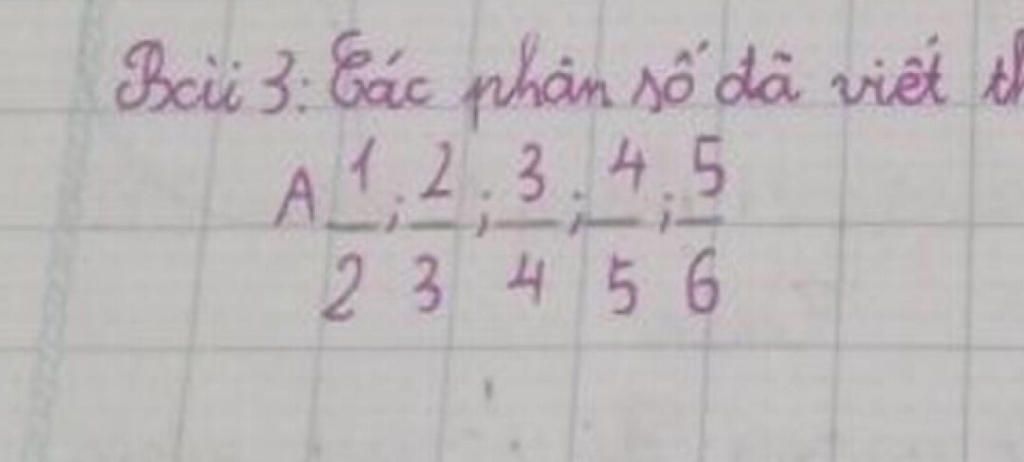 Bài 3: Các phân số đã viết th
A 1/2 ; 2/3 ; 3/4 ; 4/5 ; 5/6